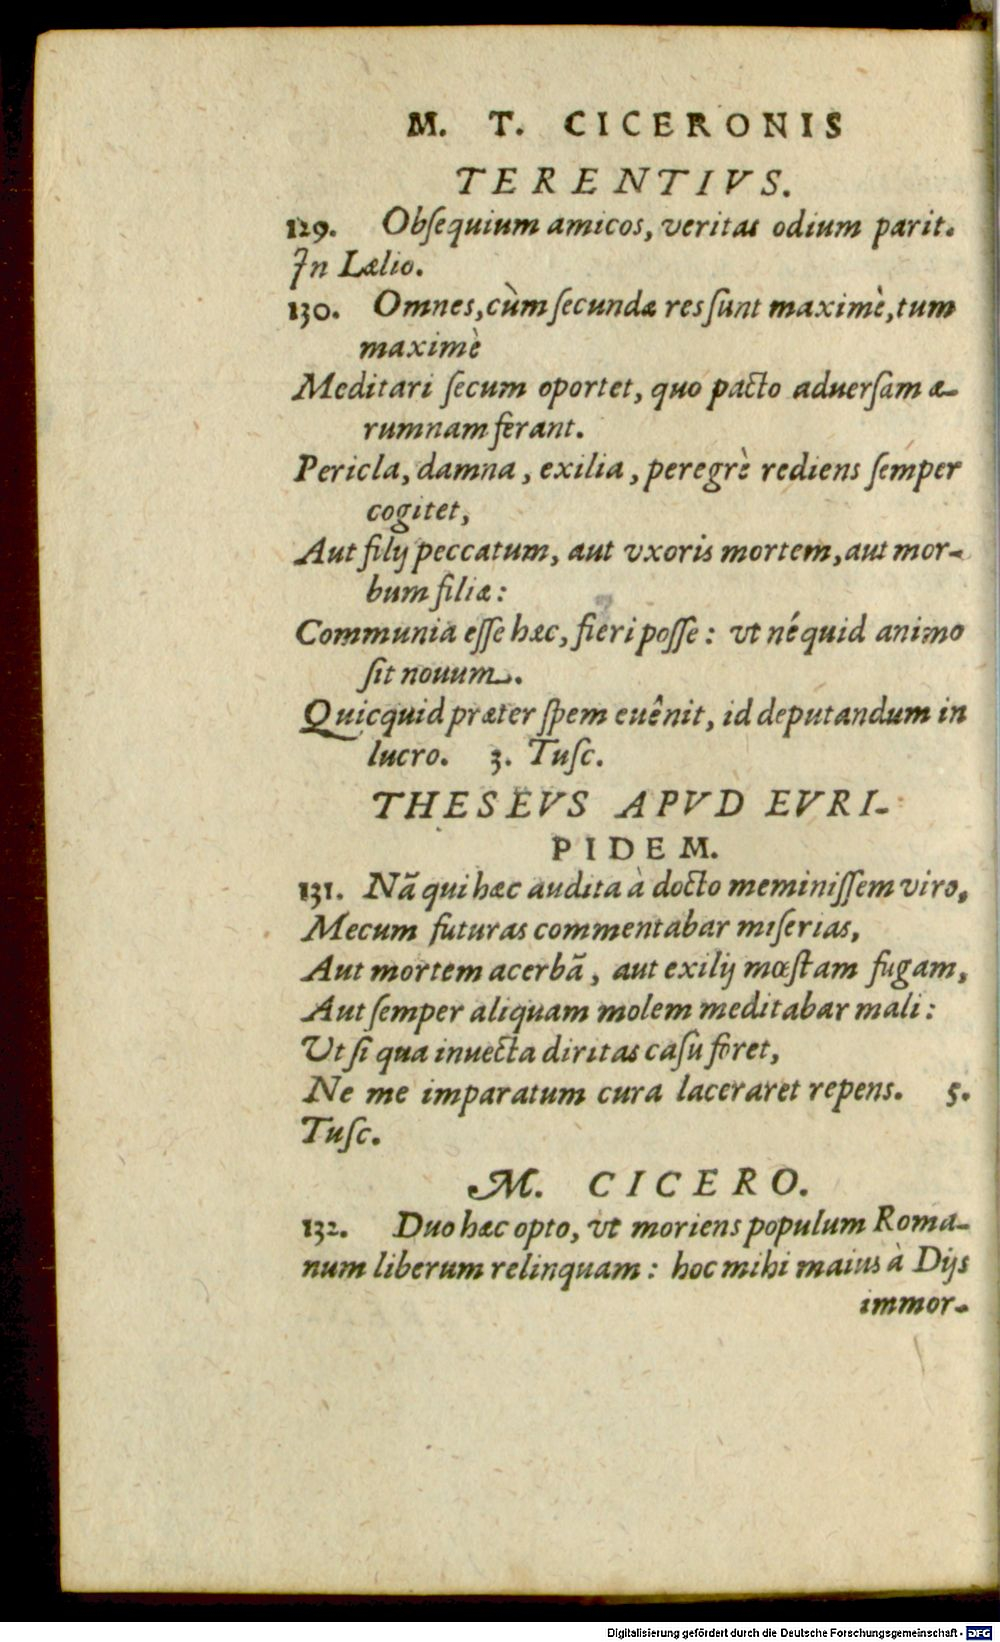 M. T. CICERONIS
TERENTIVS.
129. Obſequium amicos, veritas odium parit.
In Lælio.
130. Omnes, cùm ſecundæ res ſunt maximè, tum
maximè
Meditari ſecum oportet, quo pacto aduerſam æ-
rumnam ferant.
Pericla, damna, exilia, peregrè rediens ſemper
cogitet,
Aut filij peccatum, aut vxoris mortem, aut mor-
bum filiæ:
Communia eſſe hæc, fieri poſſe: vt né quid animo
ſit nouum.
Quicquid præter ſpem euênit, id deputandum in
lucro. 3. Tuſc.
THESEVS APVD EVRI-
PIDEM.
131. Nã qui hæc audita à docto meminiſſem viro,
Mecum futuras commentabar miſerias,
Aut mortem acerbã, aut exilij mœſtam fugam,
Aut ſemper aliquam molem meditabar mali:
Ut ſi qua inuecta diritas caſu foret,
Ne me imparatum cura laceraret repens. 5.
Tuſc.
M. CICERO.
132. Duo hæc opto, vt moriens populum Roma-
num liberum relinquam: hoc mihi maius à Dijs
immor-
Digitalisierung gefördert durch die Deutsche Forschungsgemeinschaft - DFG